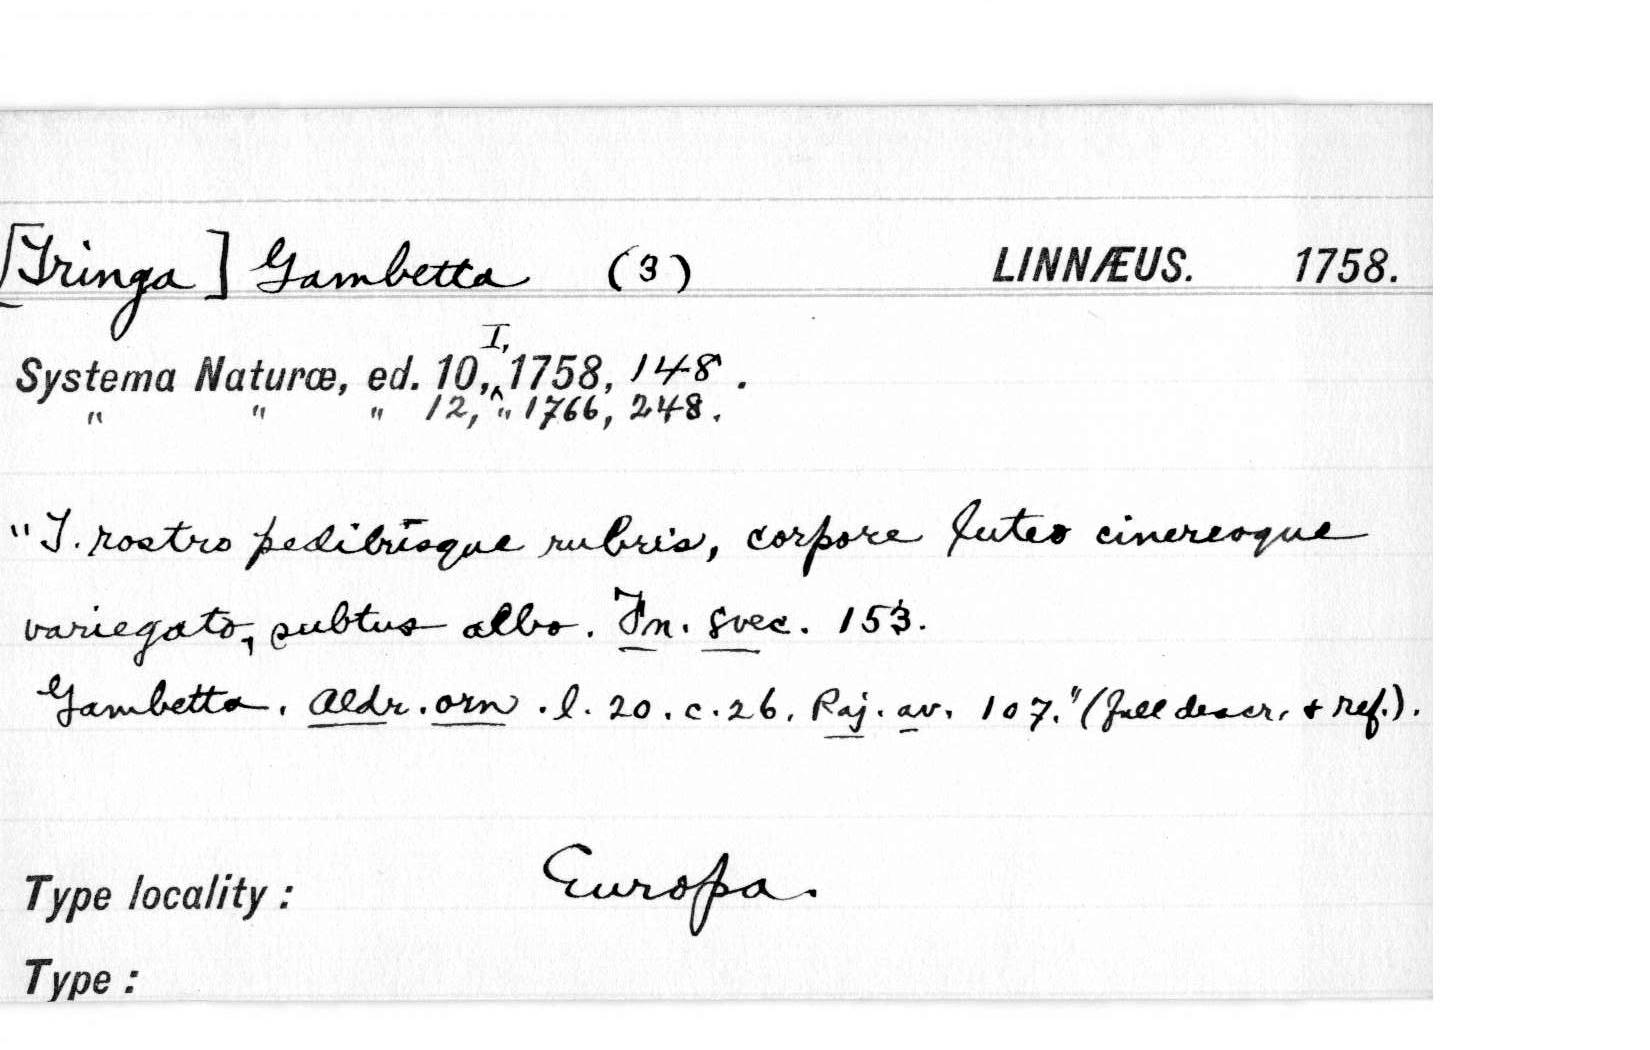 [Tringa] Gambetta (3) LINNÆUS. 1758.
Systema Naturæ, ed. 10, I, 1758, 148.
" " " 12, " 1766, 248.
"T. rostro pedibusque rubris, corpore luteo cinereoque
variegato, subtus albo. Fn. svec. 153.
Gambetta. Aldr. orn. l. 20. c. 26. Raj. av. 107." (full descr. & ref.).
Type locality: Europa.
Type: